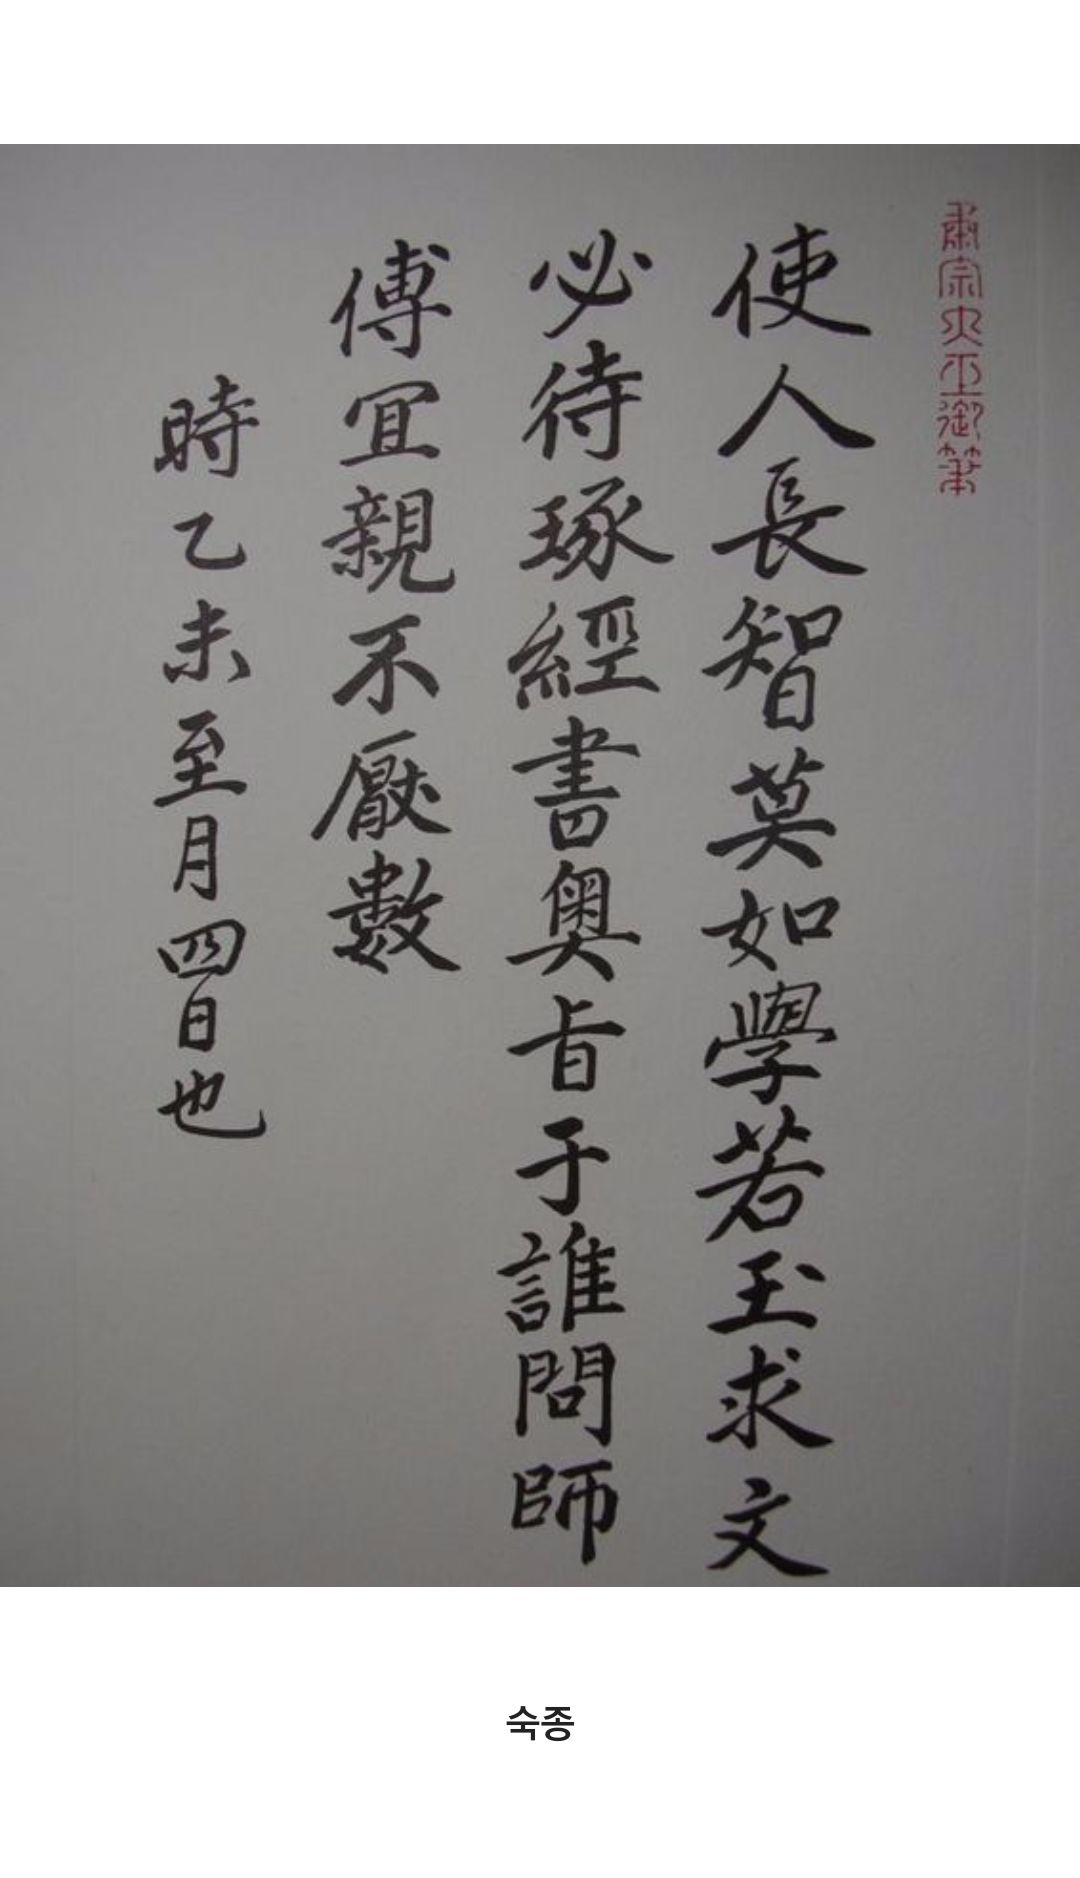 肅宗大王御筆
使人長智莫如學若玉求文
必待琢經書奧旨于誰問師
傅宜親不厭數
時乙未至月四日也
숙종